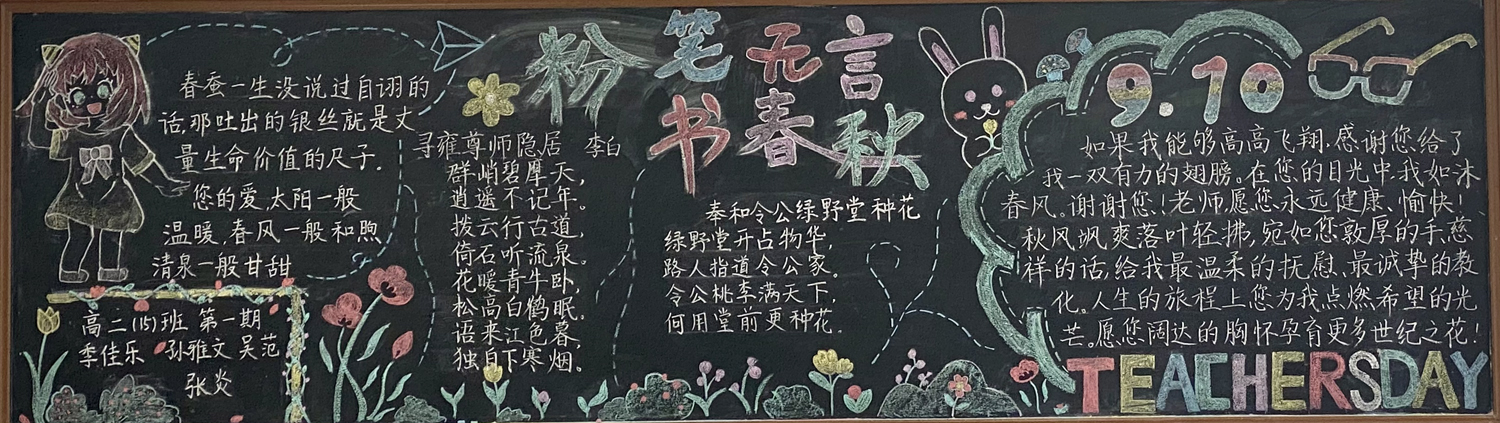 春蚕一生没说过自诩的
话,那吐出的银丝就是丈
量生命价值的尺子.
您的爱,太阳一般
温暖,春风一般和煦
清泉一般甘甜
高二(15)班 第一期
季佳乐 孙雅文 吴范
张炎
粉笔无言
书春秋
寻雍尊师隐居 李白
群峭碧摩天,
逍遥不记年。
拨云行古道,
倚石听流泉。
花暖青牛卧,
松高白鹤眠。
语来江色暮,
独自下寒烟。
奉和令公绿野堂种花
绿野堂开占物华,
路人指道令公家。
令公桃李满天下,
何用堂前更种花.
9.10
如果我能够高高飞翔.感谢您给了
我一双有力的翅膀。在您的目光中.我如沐
春风。谢谢您!老师愿您永远健康、愉快!
秋风飒爽落叶轻拂,宛如您敦厚的手,慈
祥的话,给我最温柔的抚慰、最诚挚的教
化。人生的旅程上您为我点燃希望的光
芒。愿您阔达的胸怀孕育更多世纪之花!
TEACHERSDAY